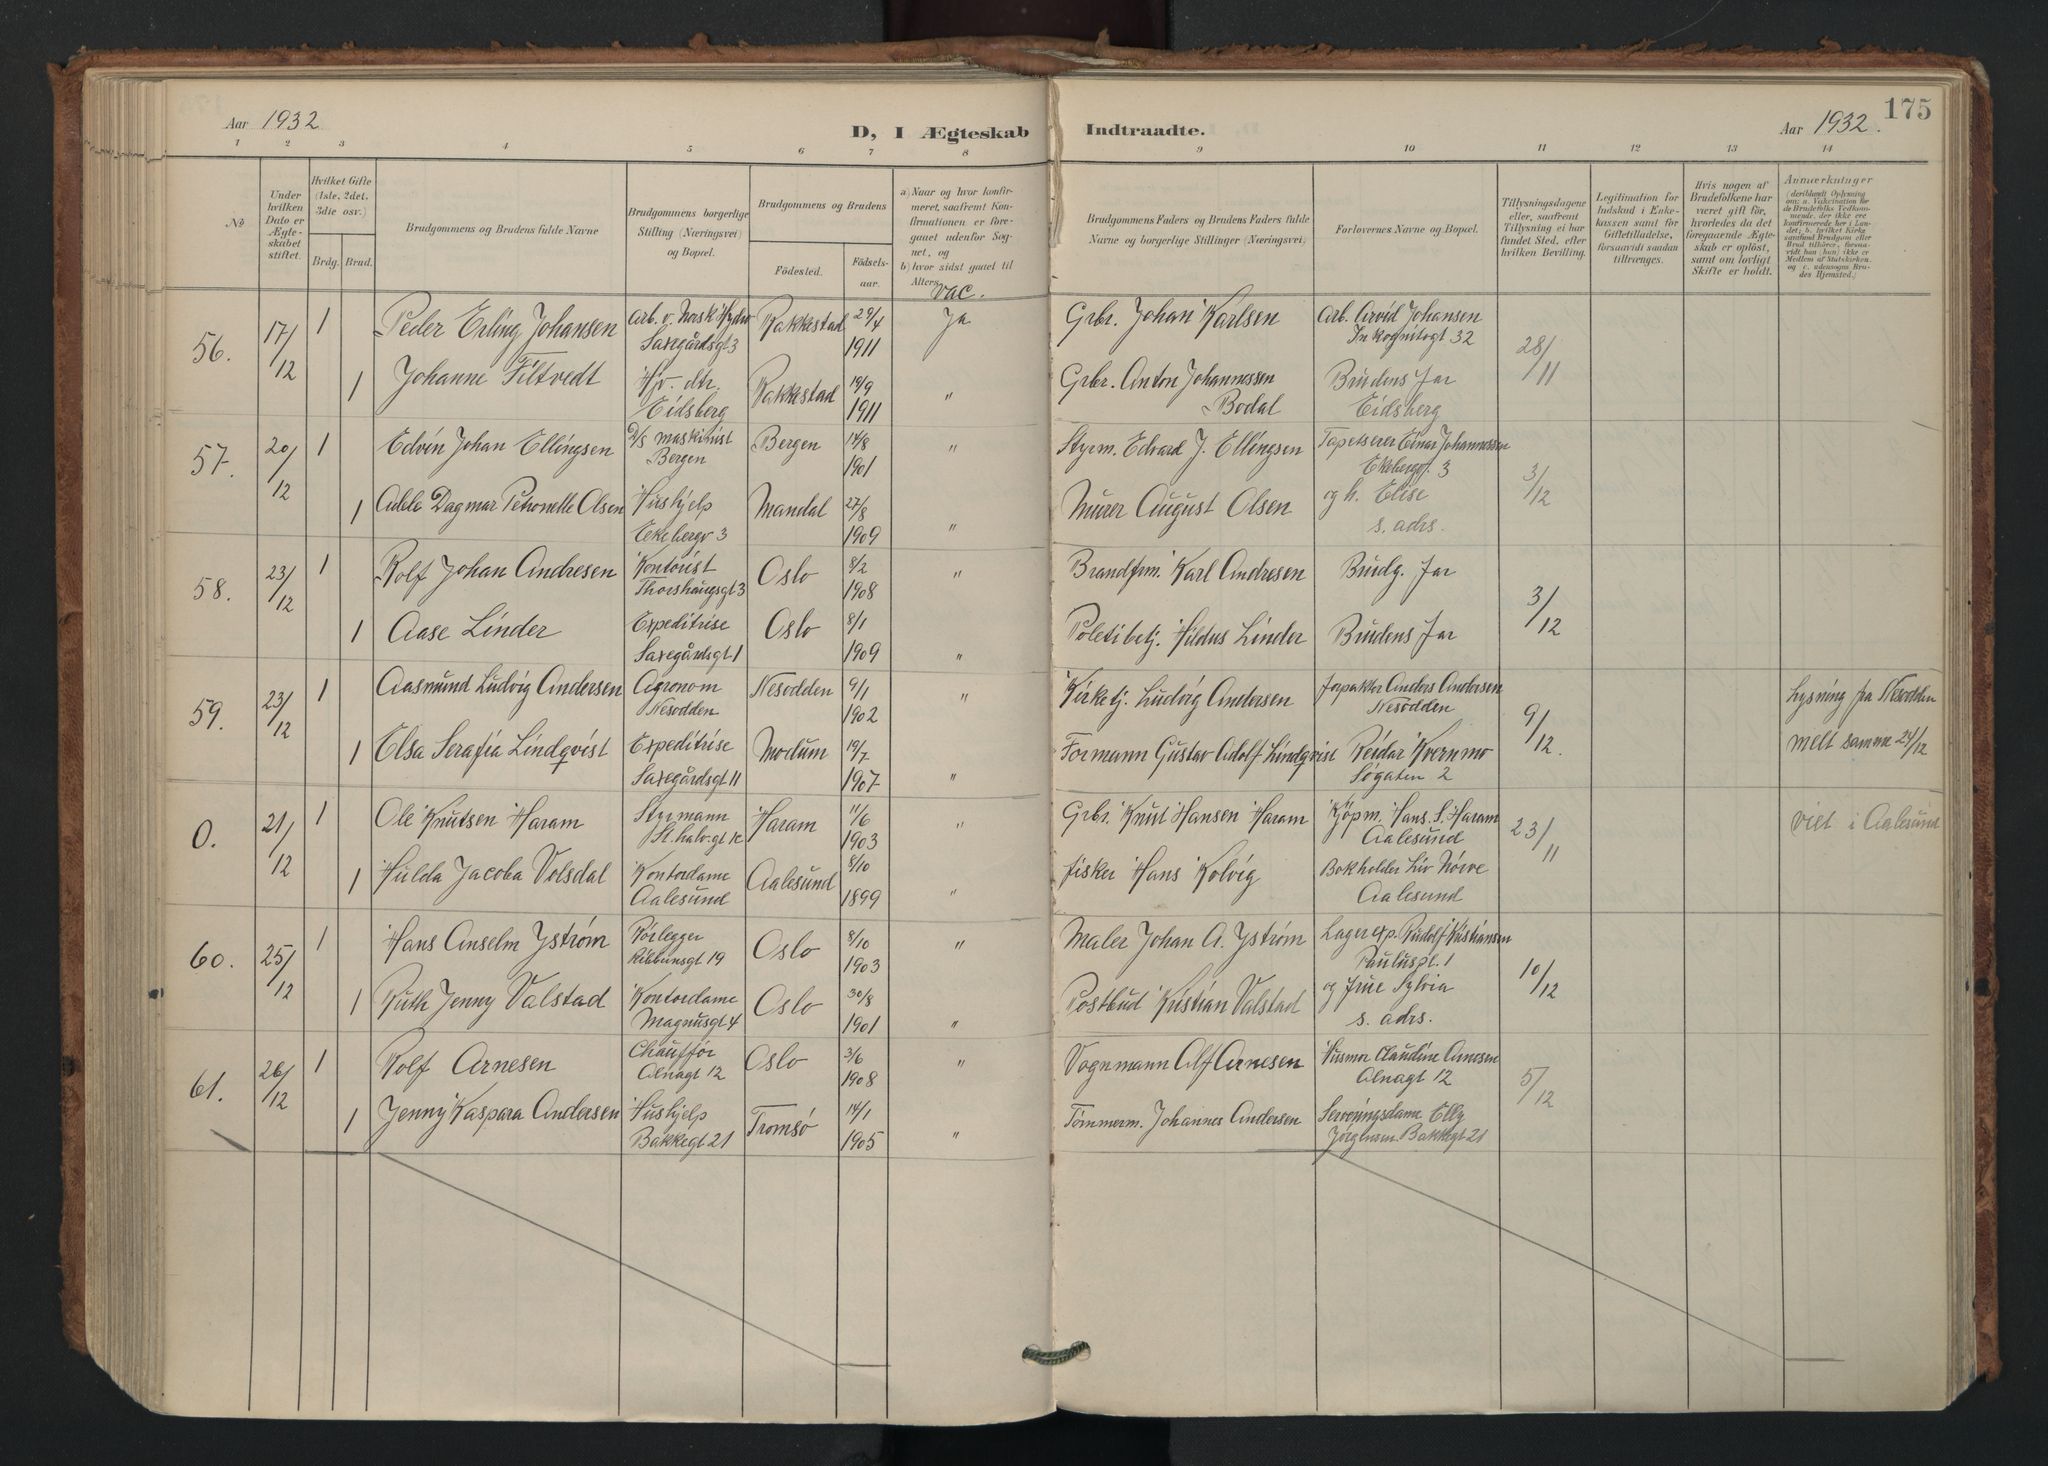 Aar 1932
D, I Ægteskab
Indtraadte.
Aar 1932.
175
1 2 3 4 5 6 7 8 9 10 11 12 13 14
№
Under hvilken Dato er Ægteskabet stiftet.
Hvilket Gifte (1ste, 2det, 3die osv.)
Brdg. Brud.
Brudgommens og Brudens fulde Navne
Brudgommens borgerlige Stilling (Næringsvei) og Bopæl.
Brudgommens og Brudens
Födested.
Födselsaar.
a) Naar og hvor konfirmeret, saafremt Konfirmationen er foregaaet udenfor Sognet, og
b) hvor sidst gaaet til Alters.
vac.
Brudgommens Faders og Brudens Faders fulde Navne og borgerlige Stillinger (Næringsvei)
Forlovernes Navne og Bopæl.
Tillysningsdagene eller, saafremt Tillysning ei har fundet Sted, efter hvilken Bevilling.
Legitimation for Indskud i Enkekassen samt for Giftetilladelse, forsaavidt saadan tiltrænges.
Hvis nogen af Brudefolkene har været gift før, hvorledes da det foregaaende Ægteskab er oplöst, samt om lovligt Skifte er holdt.
Anmærkninger
(deriblandt Oplysning om: a. Vakcination for de Brudefolks Vedkommende, der ikke ere konfirmerede her i Landet; b. hvilket Kirkesamfund Brudgom eller Brud tilhörer, forsaavidt han (hun) ikke er Medlem af Statskirken, og c. udensogns Brudes Hjemsted.)
56. 17/12 1 Peder Erling Johansen Arb. v. Norsk Hydro Saxegårdsgt 3 Rakkestad 29/4 1911 Ja Grbr. Johan Karlsen Arb. Arvid Johansen Inkognitogt 32 28/11
1 Johanne Filtvedt Hjv. dtr. Eidsberg Rakkestad 19/9 1911 " Grbr. Anton Johannessen Bodal Brudens Far Eidsberg
57. 20/12 1 Edvin Johan Ellingsen D/S maskinist Bergen Bergen 14/8 1901 " Styrm. Edvard J. Ellingsen Tapetserer Einar Johannessen Ekebergv. 3 3/12
1 Adele Dagmar Petronelle Olsen Hushjelp Ekebergv 3 Mandal 27/8 1909 " Murer August Olsen og h. Elise s. adrs.
58. 23/12 1 Rolf Johan Andresen Kontorist Thorshaugsgt 3 Oslo 8/2 1908 " Brandfrm. Karl Andresen Brudg. Far 3/12
1 Aase Linder Expeditrise Saxegårdsgt 1 Oslo 8/1 1909 " Poletibetj. Hildus Linder Brudens Far
59. 23/12 1 Aasmund Ludvig Andersen Agronom Nesodden Nesodden 9/1 1902 " Kirketj. Ludvig Andersen Forpakter Anders Andersen Nesodden 9/12. Lysning fra Nesodden
1 Elsa Serafia Lindqvist Expeditrise Saxegårdsgt 11 Modum 19/7 1907 " Formann Gustav Adolf Lindqvist Reidar Kvernmo Søgaten 2 melt samme 24/12
0. 21/12 1 Ole Knutsen Haram Styrmann St. halv. gt Haram 11/6 1903 " Grbr. Knut Hansen Haram Kjöpm. Hans. S. Haram Aalesund 23/11 viet i Aalesund
1 Hilda Jacoba Volsdal Kontordame Aalesund Aalesund 8/10 1899 " fisker Hans Kolvig Bokholder Liv Nörve Aalesund
60. 25/12 1 Hans Anselm Yström Rørlegger Ribbunsgt 19 Oslo 8/10 1903 " Maler Johan A. Yström Lagerexp. Rudolf Kristiansen Pauluspl. 1 10/12
1 Ruth Jenny Valstad Kontordame Magnusgt 4 Oslo 30/8 1901 " Postbud Kristian Valstad og frue Sylvia s. adrs.
61. 26/12 1 Rolf Arnesen Chauffør Alnagt 12 Oslo 3/6 1908 " Vognmann Alf Arnesen Husmor Claudine Arnesen Alnagt 12 5/12
1 Jenny Kaspara Andersen Hushjelp Bakkegt 21 Tromsø 14/1 1905 " Tömmerm. Johannes Andersen Serveringsdame Elly Bakkegt 21